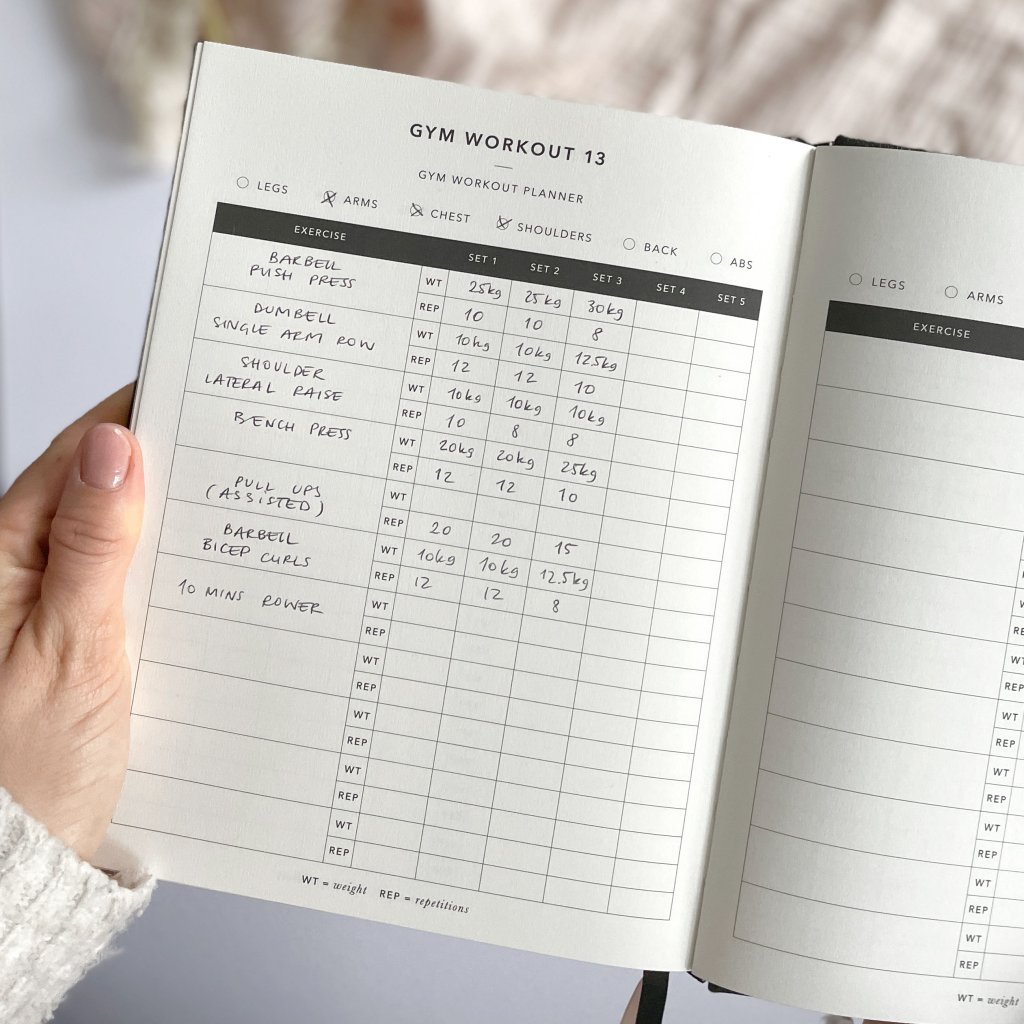 GYM WORKOUT 13
GYM WORKOUT PLANNER
LEGS ARMS CHEST SHOULDERS BACK ABS
EXERCISE SET 1 SET 2 SET 3 SET 4 SET 5
BARBELL
PUSH PRESS
WT 25kg 25kg 30kg
REP 10 10 8
DUMBELL
SINGLE ARM ROW
WT 10kg 10kg 12.5kg
REP 12 12 10
SHOULDER
LATERAL RAISE
WT 10kg 10kg 10kg
REP 10 8 8
BENCH PRESS
WT 20kg 20kg 25kg
REP 12 12 10
PULL UPS
(ASSISTED)
WT
REP 20 20 15
BARBELL
BICEP CURLS
WT 10kg 10kg 12.5kg
REP 12 12 8
10 MINS ROWER
WT
REP
WT
REP
WT
REP
WT
REP
WT
REP
WT = weight REP = repetitions
LEGS ARMS
EXERCISE
REP
WT
REP
WT
REP
WT
REP
WT
REP
WT
REP
WT
REP
WT = weight